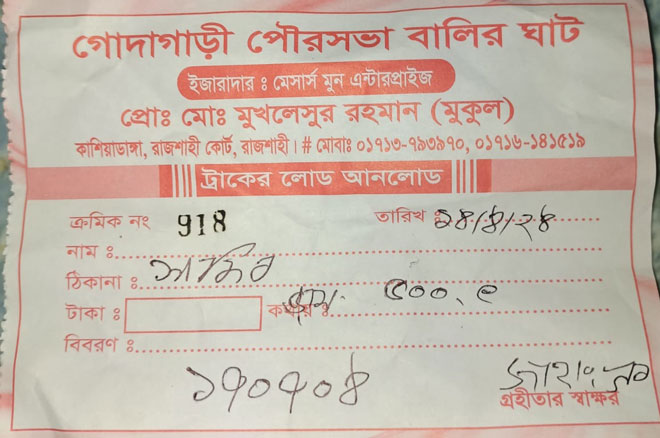 গোদাগাড়ী পৌরসভা বালির ঘাট
ইজারাদার ঃ মেসার্স মুন এন্টারপ্রাইজ
প্রোঃ মোঃ মুখলেসুর রহমান (মুকুল)
কাশিয়াডাঙ্গা, রাজশাহী কোর্ট, রাজশাহী। # মোবাঃ ০১৭১৩-৭৯৩৯৭০, ০১৭১৬-১৪১৫১৯
ট্রাকের লোড আনলোড
ক্রমিক নং 918 তারিখ ঃ ১৪/৪/২৪
নাম ঃ
ঠিকানা ঃ সাব্বির
টাকা ঃ ৫০০
বিবরণ ঃ
১৭০৭০৪
গ্রহীতার স্বাক্ষর